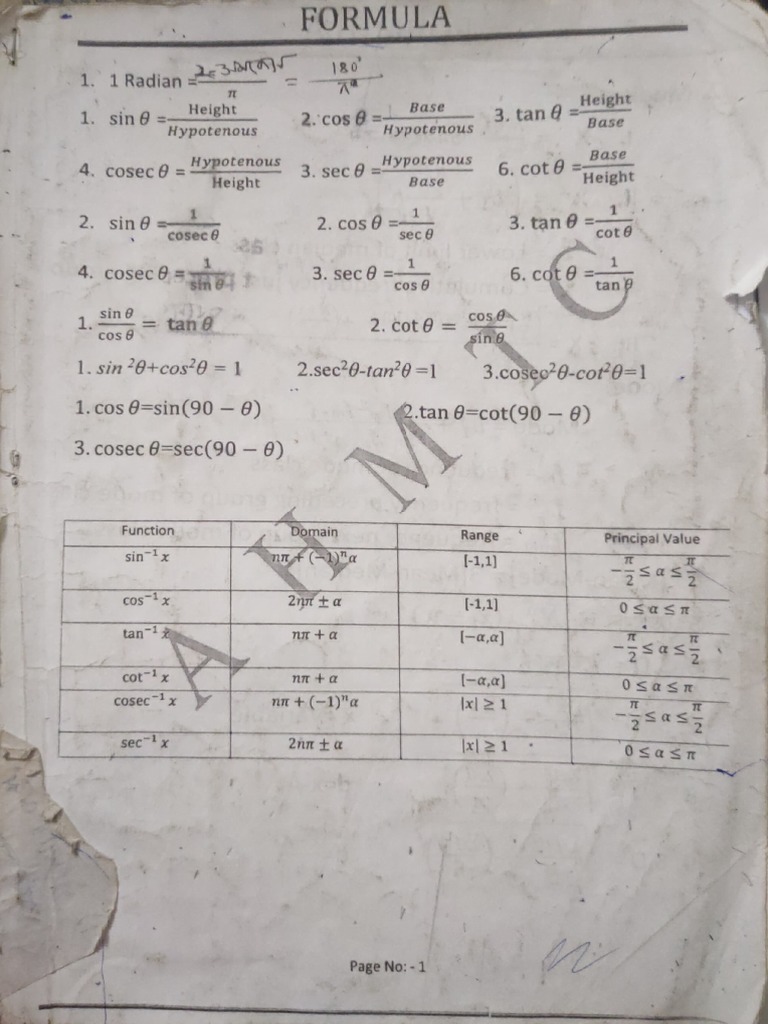 FORMULA
1. 1 Radian = 2 সমকোণ / π = 180° / π
1. sin θ = Height / Hypotenous 2. cos θ = Base / Hypotenous 3. tan θ = Height / Base
4. cosec θ = Hypotenous / Height 3. sec θ = Hypotenous / Base 6. cot θ = Base / Height
2. sin θ = 1 / cosec θ 2. cos θ = 1 / sec θ 3. tan θ = 1 / cot θ
4. cosec θ = 1 / sin θ 3. sec θ = 1 / cos θ 6. cot θ = 1 / tan θ
1. sin θ / cos θ = tan θ 2. cot θ = cos θ / sin θ
1. sin ²θ+cos²θ = 1 2.sec²θ-tan²θ =1 3.cosec²θ-cot²θ=1
1. cos θ=sin(90 − θ) 2.tan θ=cot(90 − θ)
3. cosec θ=sec(90 − θ)
Function Domain Range Principal Value
sin⁻¹ x nπ + (−1)ⁿα [-1,1] −π/2 ≤ α ≤ π/2
cos⁻¹ x 2nπ ± α [-1,1] 0 ≤ α ≤ π
tan⁻¹ x nπ + α [−α,α] −π/2 ≤ α ≤ π/2
cot⁻¹ x nπ + α [−α,α] 0 ≤ α ≤ π
cosec⁻¹ x nπ + (−1)ⁿα |x| ≥ 1 −π/2 ≤ α ≤ π/2
sec⁻¹ x 2nπ ± α |x| ≥ 1 0 ≤ α ≤ π
A H M T C
Page No: - 1